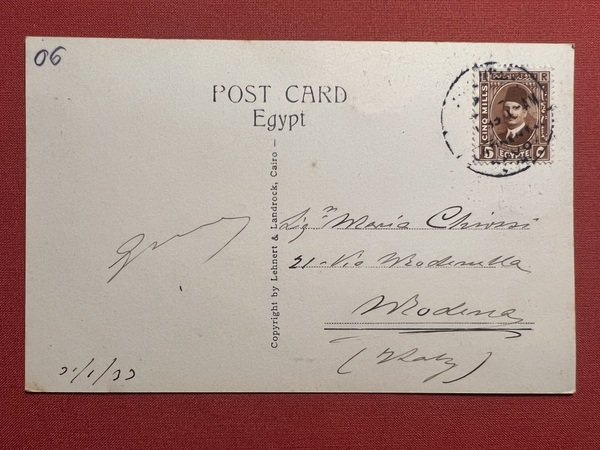 06
POST CARD
Egypt
Copyright by Lehnert & Landrock, Cairo –
CINQ MILLS
5 EGYPTE ٥
Sigra Maria Chiossi
21 - Via
Modena
(Italy)
21/1/33